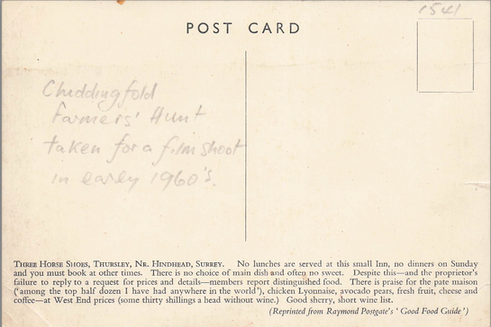 1541
POST CARD
Chiddingfold
Farmers' Hunt
taken for a film shoot
in early 1960's.
THREE HORSE SHOES, THURSLEY, NR. HINDHEAD, SURREY. No lunches are served at this small Inn, no dinners on Sunday
and you must book at other times. There is no choice of main dish and often no sweet. Despite this—and the proprietor's
failure to reply to a request for prices and details—members report distinguished food. There is praise for the pate maison
('among the top half dozen I have had anywhere in the world'), chicken Lyonnaise, avocado pears, fresh fruit, cheese and
coffee—at West End prices (some thirty shillings a head without wine.) Good sherry, short wine list.
(Reprinted from Raymond Postgate's 'Good Food Guide')